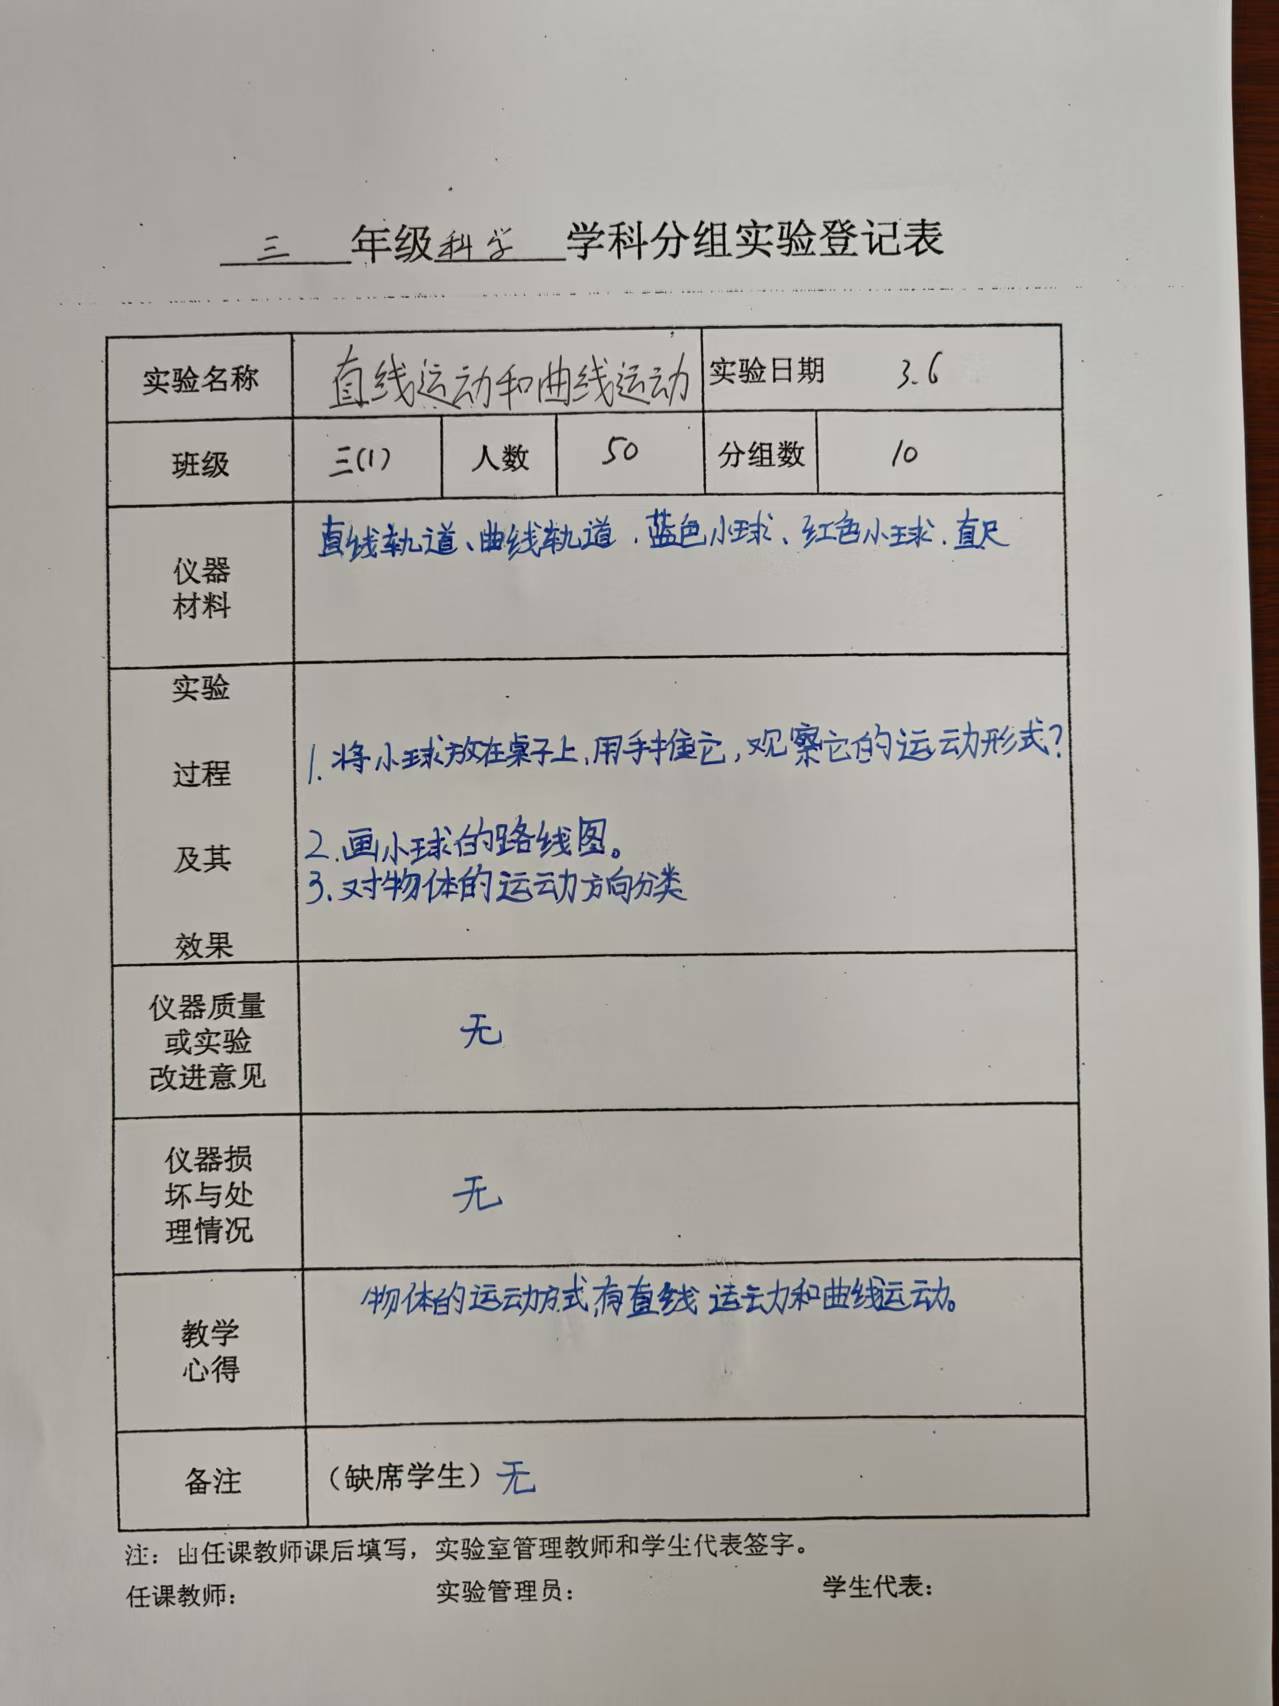 三 年级科学 学科分组实验登记表
实验名称 直线运动和曲线运动 实验日期 3.6
班级 三(1) 人数 50 分组数 10
仪器
材料
直线轨道、曲线轨道、蓝色小球、红色小球、直尺
实验
过程
及其
效果
1.将小球放在桌子上,用手推它,观察它的运动形式?
2.画小球的路线图。
3.对物体的运动方向分类
仪器质量
或实验
改进意见
无
仪器损
坏与处
理情况
无
教学
心得
物体的运动方式,有直线运动和曲线运动。
备注 (缺席学生)无
注:由任课教师课后填写,实验室管理教师和学生代表签字。
任课教师: 实验管理员: 学生代表: